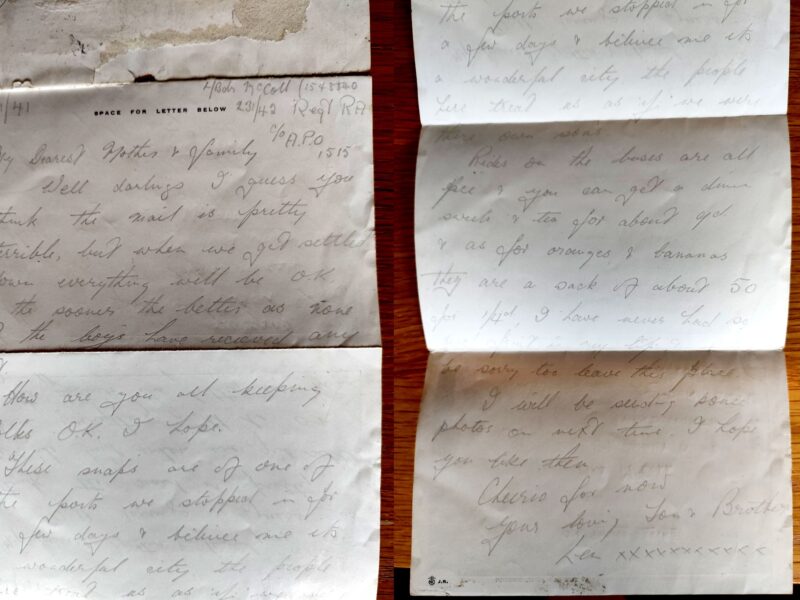 L/Bdr McColl (1543340
/41
SPACE FOR LETTER BELOW 23/42 Regt RA
c/o A.P.O
1515
My Dearest Mother & family
Well darlings I guess you
think the mail is pretty
terrible, but when we get settled
down everything will be O.K
the sooner the better as none
of the boys have recieved any
How are you all keeping
folks O.K. I hope.
These snaps are of one of
the ports we stopped in for
a few days & bilieve me its
a wonderful city the people
here treat us as if we were
the ports we stopped in for
a few days & bilieve me its
a wonderful city the people
here treat us as if we were
there own sons
Rides on the buses are all
free & you can get a dinner
sweet & tea for about 9d
& as for oranges & bananas
they are a sack of about 50
for 1/4d I have never had so
be sorry too leave this place
I will be sending some
photos on next time. I hope
you like them.
Cheerio for now
Your loving Son & Brother
Len xxxxxxxxxxx
J.R.